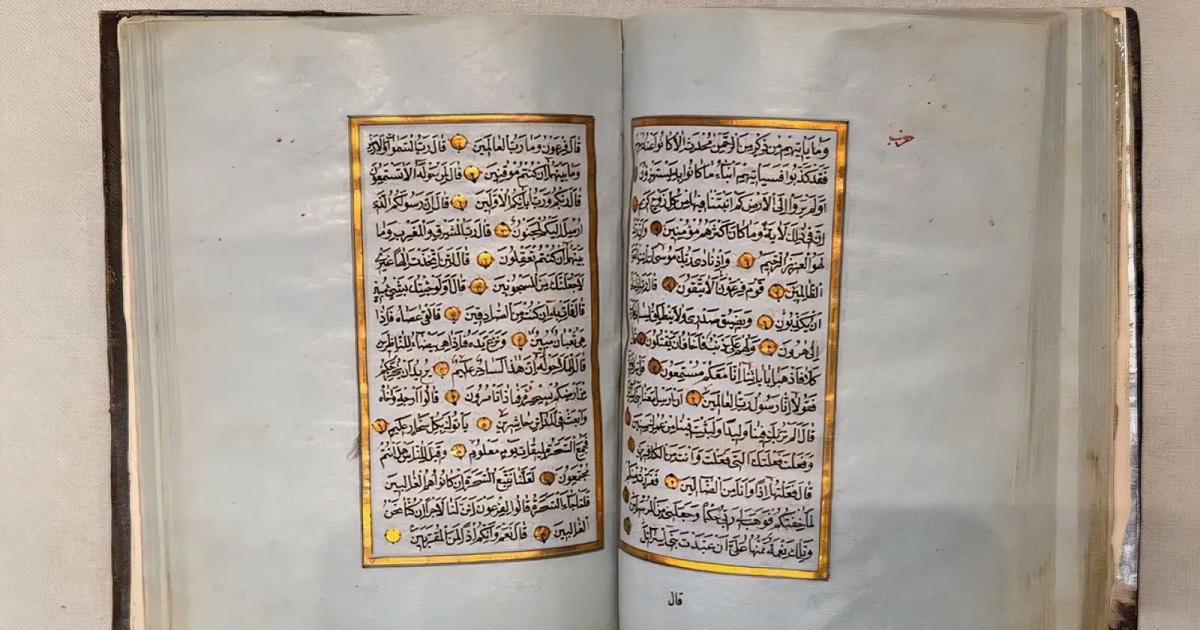 وما ياتيهم من ذكر من الرحمن محدث الا كانوا عنه
فقد كذبوا فسياتيهم انباء ما كانوا به يستهزؤن
اولم يروا الى الارض كم انبتنا فيها من كل زوج كريم
ان في ذلك لاية وما كان اكثرهم مؤمنين وان ربك
لهو العزيز الرحيم واذ نادى ربك موسى ان ائت القوم
الظالمين قوم فرعون الا يتقون قال رب انى اخاف
ان يكذبون ويضيق صدرى ولا ينطلق لسانى
الى هرون ولهم على ذنب فاخاف ان يقتلون قال
كلا فاذهبا باياتنا انا معكم مستمعون فاتيا فرعون
فقولا انا رسول رب العالمين ان ارسل معنا بنى
قال الم نربك فينا وليدا ولبثت فينا من عمرك سنين
وفعلت فعلتك التى فعلت وانت من الكافرين
قال فعلتها اذا وانا من الضالين ففررت منكم
لما خفتكم فوهب لى ربى حكما وجعلنى من المرسلين
وتلك نعمة تمنها على ان عبدت بنى اسرائل
قال
قال فرعون وما رب العالمين قال رب السموات والارض
وما بينهما ان كنتم موقنين قال لمن حوله الا تستمعون
قال ربكم ورب ابائكم الاولين قال ان رسولكم الذى
ارسل اليكم لمجنون قال رب المشرق والمغرب وما
بينهما ان كنتم تعقلون قال لئن اتخذت الها غيرى
لاجعلنك من المسجونين قال اولو جئتك بشئ مبين
قال فات به ان كنت من الصادقين فالقى عصاه فاذا
هى ثعبان مبين ونزع يده فاذا هى بيضاء للناظرين
قال للملا حوله ان هذا لساحر عليم يريد ان يخرجكم
من ارضكم بسحره فماذا تامرون قالوا ارجه واخاه
وابعث فى المداين حاشرين ياتوك بكل سحار عليم
فجمع السحرة لميقات يوم معلوم وقيل للناس هل انتم
مجتمعون لعلنا نتبع السحرة ان كانوا هم الغالبين
فلما جاء السحرة قالوا لفرعون ائن لنا لاجرا ان كنا نحن
الغالبين قال نعم وانكم اذا لمن المقربين